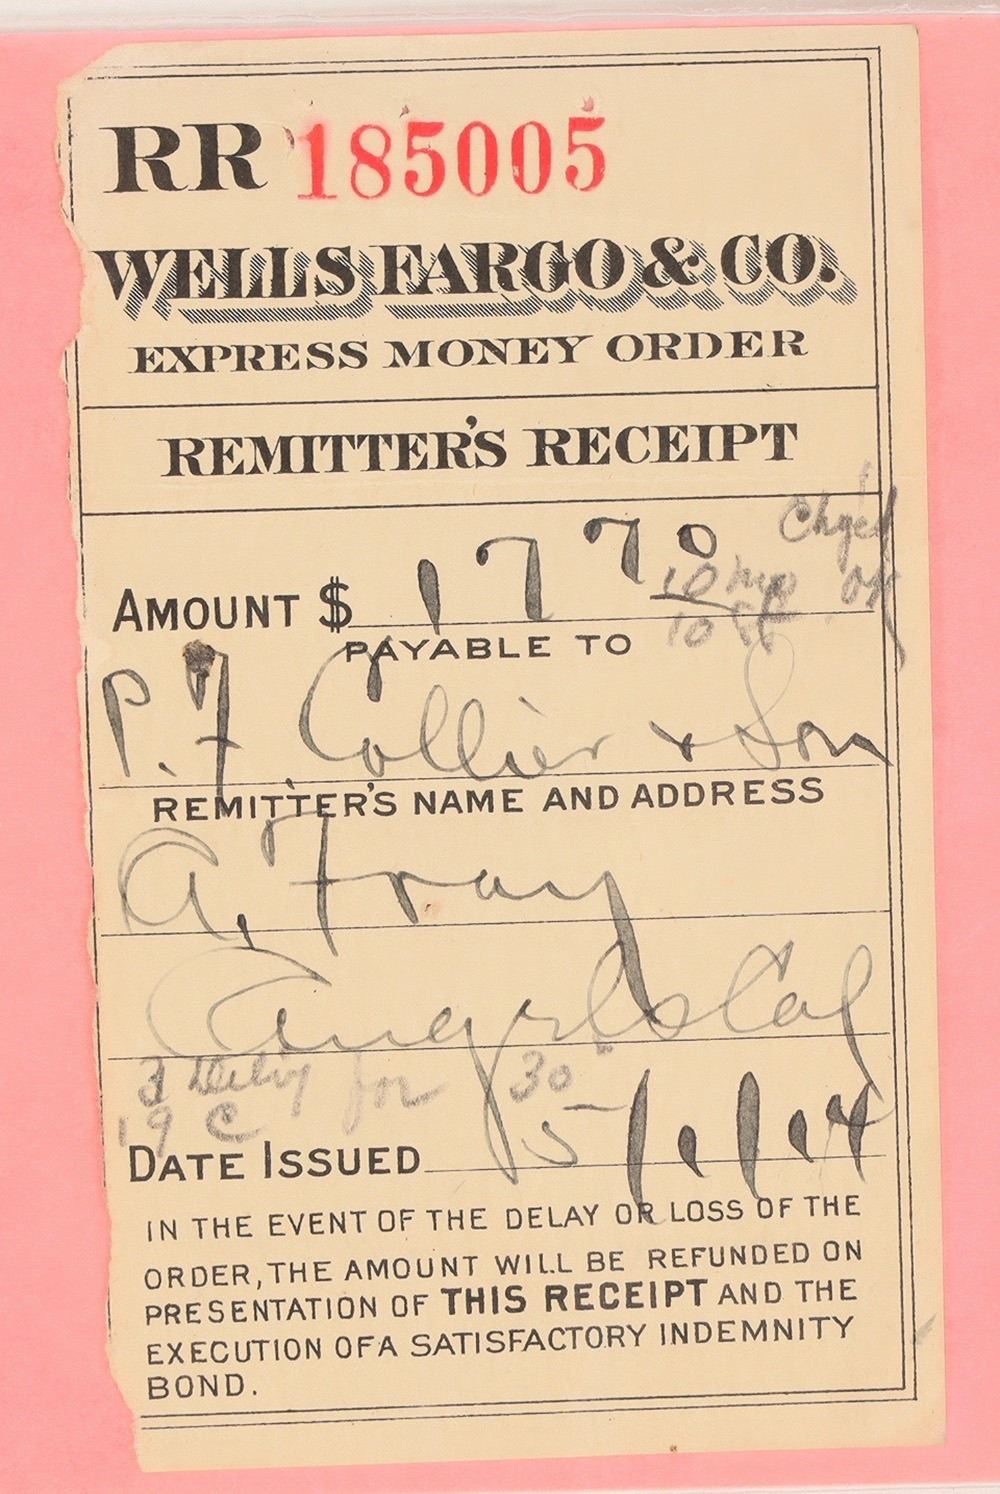 RR 185005
WELLS FARGO & CO.
EXPRESS MONEY ORDER
REMITTER'S RECEIPT
Chged
AMOUNT $ 17 70
off
PAYABLE TO
P. F. Collier & Son
REMITTER'S NAME AND ADDRESS
A. Fray
Angels Cal
3 Delvy for 30
19 C
DATE ISSUED 5/1/14
IN THE EVENT OF THE DELAY OR LOSS OF THE
ORDER, THE AMOUNT WILL BE REFUNDED ON
PRESENTATION OF THIS RECEIPT AND THE
EXECUTION OF A SATISFACTORY INDEMNITY
BOND.